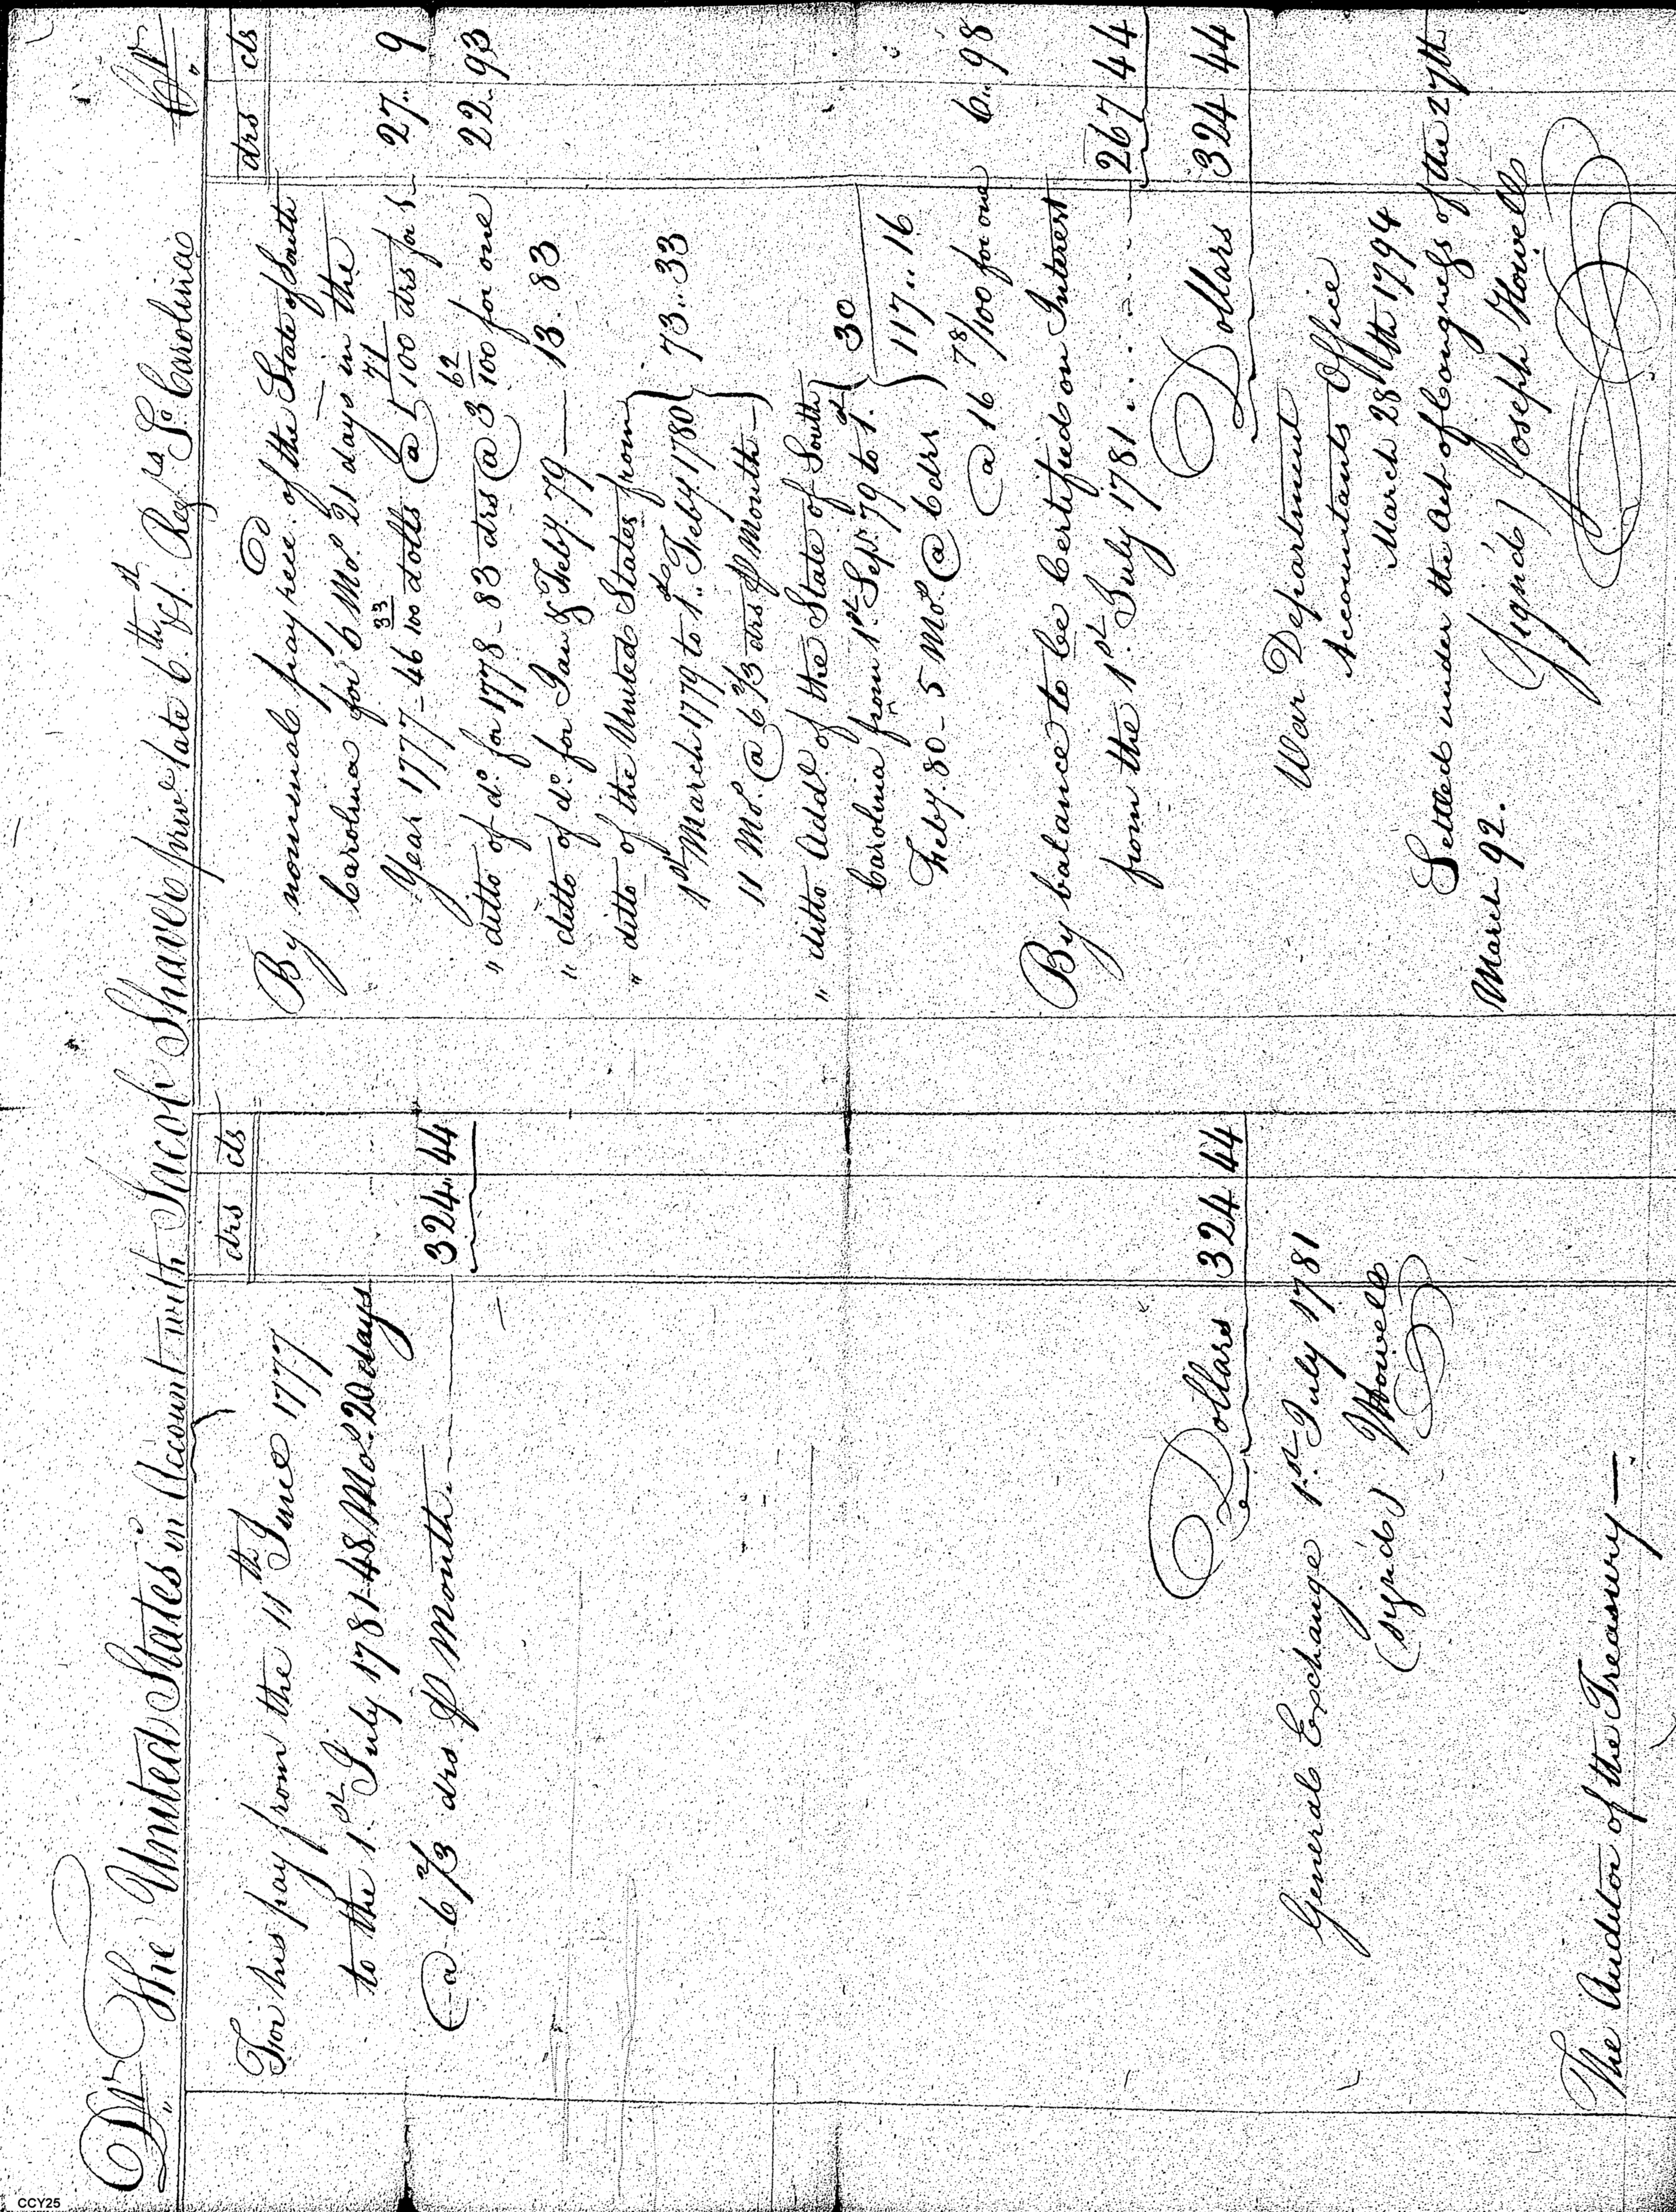 Dr The United States in Account with Jacob Shaver priv.e late 6.th & 1.st Reg.ts So Carolina Cr
drs cts
For his pay from the 11th June 1777
to the 1.st July 1781-48 Mos. 20 days
@ 6 2/3 drs. ⅌ Month 324.. 44
Dollars 324 44
General Exchange 1.st July 1781
(signed) JHowell
The Auditor of the Treasury —
drs cts
By nominal pay rece.d of the State of South
Carolina for 6 Mos. 21 days in the
Year 1777 - 46 33/100 dolls @ 1 71/100 drs for 1 - 27.. 9
" ditto of do. for 1778 - 83 drs @ 3 62/100 for one 22.. 93
" ditto of do. for Jan & Feby. 79 — 13. 83
" ditto of the United States from
1st March 1779 to 1.st Feby. 1780
11 Mos. @ 6 2/3 drs ⅌ Month — 73.. 33
" ditto Add.l of the State of South
Carolina from 1st Sept. 79 to 1.st
Feby. 80 - 5 Mos. @ 6 drs 30
117.. 16
@ 16 78/100 for one 6.. 98
By balance to be Certified on Interest
from the 1.st July 1781 267 44
Dollars 324 44
War Department
Accountants Office
March 28th 1794
Settled under the Act of Congress of the 27th
March 92.
(Signed) Joseph Howell
CCY25